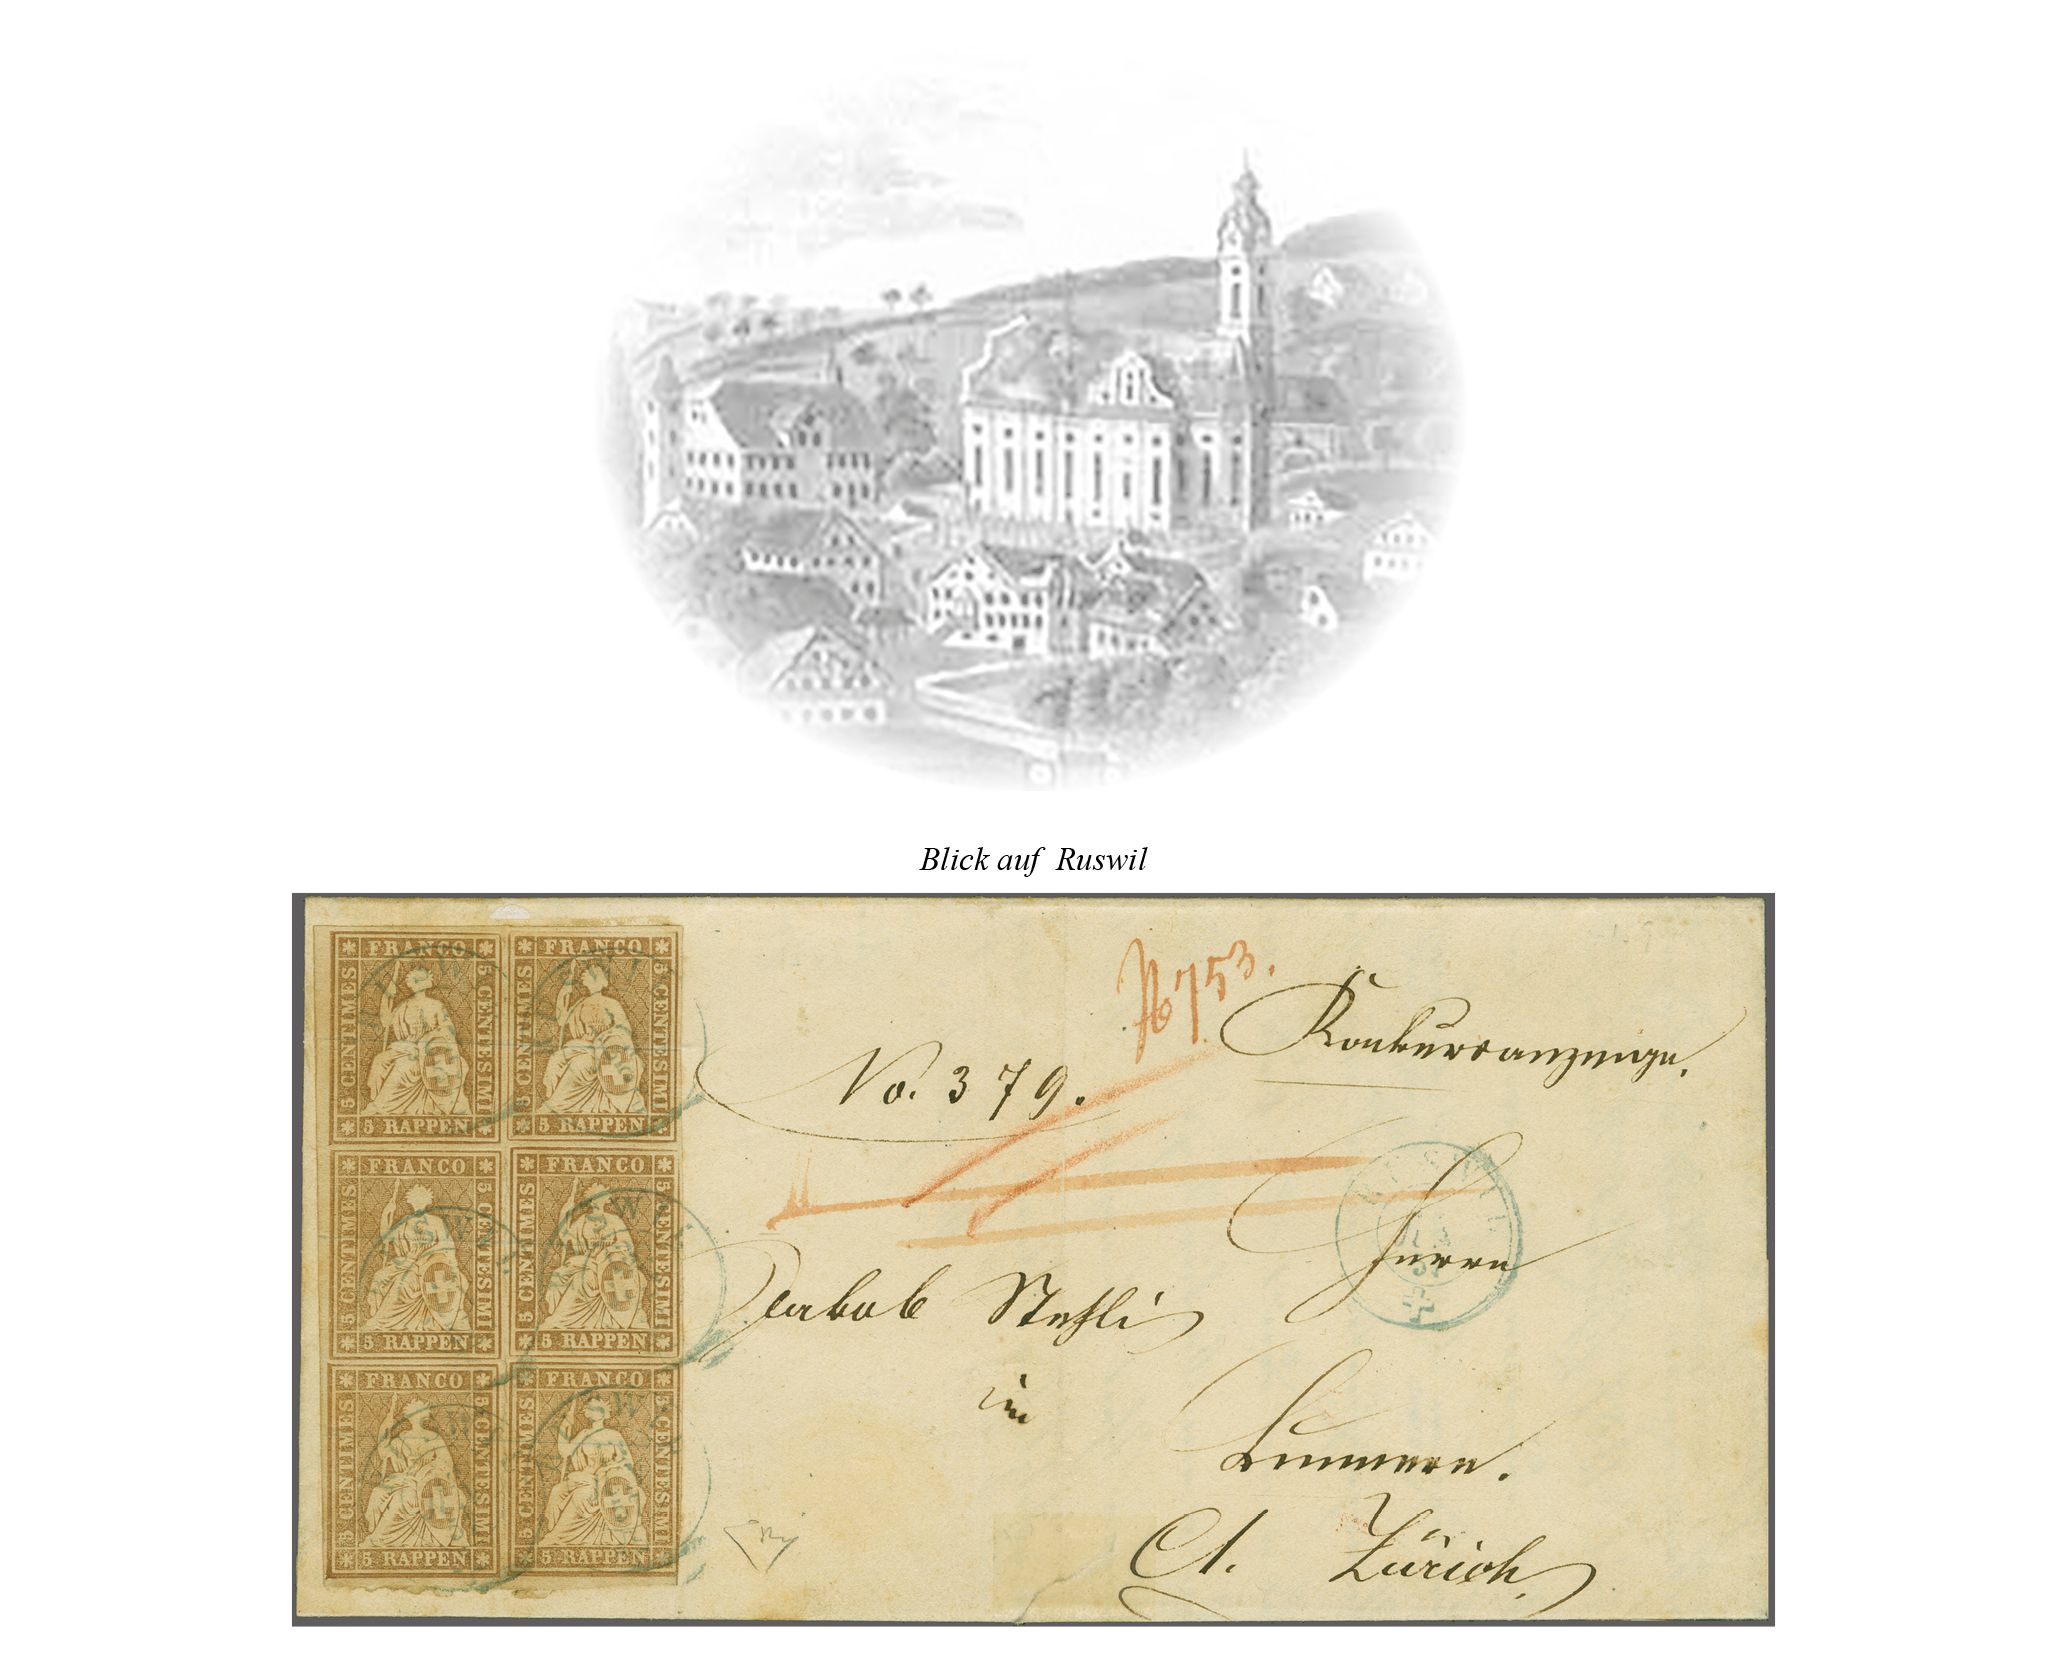 Blick auf Ruswil
FRANCO
5 CENTIMES
5 CENTESIMI
5 RAPPEN
FRANCO
5 CENTIMES
5 CENTESIMI
5 RAPPEN
No 753.
Konkursanzeige.
No. 379.
RUSWIL
Herrn
FRANCO
5 CENTIMES
5 CENTESIMI
5 RAPPEN
FRANCO
5 CENTIMES
5 CENTESIMI
5 RAPPEN
RUSWIL
RUSWIL
Jakob Stehli
in
FRANCO
5 CENTIMES
5 CENTESIMI
5 RAPPEN
FRANCO
5 CENTIMES
5 CENTESIMI
5 RAPPEN
Ct. Zürich.